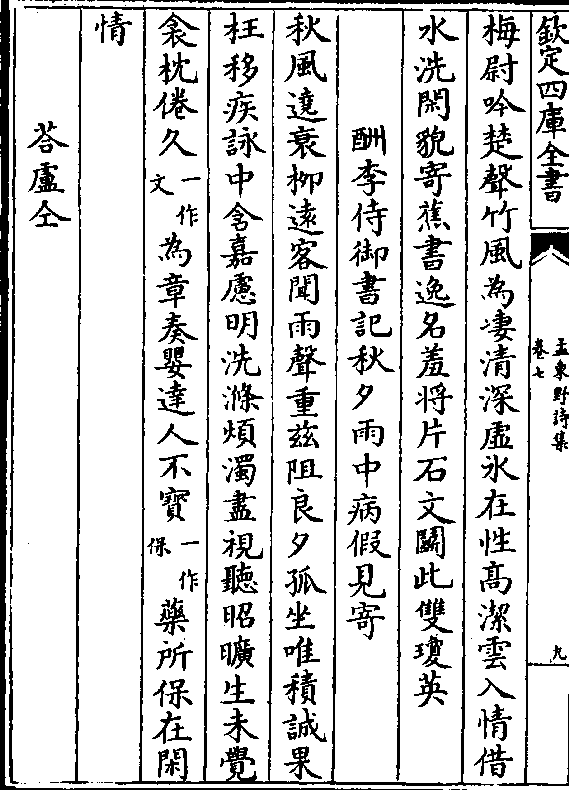 欽定四庫全書
孟東野詩集
卷七
九
梅尉吟楚聲竹風為凄清深虛氷在性髙潔雲入情借
水洗閑貌寄蕉書逸名羞將片石文鬭此雙瓊英
酬李侍御書記秋夕雨中病假見寄
秋風遶衰柳遠客聞雨聲重兹阻良夕孤坐唯積誠果
枉移疾詠中含嘉慮明洗滌煩濁盡視聽昭曠生未覺
衾枕倦久一作文為章奏嬰達人不寳一作保藥所保在閑
情
荅盧仝